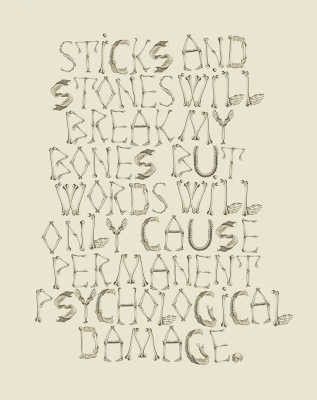 STiCKS AND
STONES WiLL
BREAK MY
BONES BUT
WORDS WiLL
ONLY CAUSE
PERMANENT
PSYCHOLOGiCAL
DAMAGE.